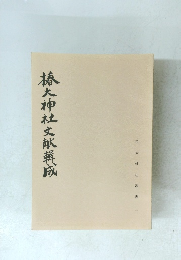 椿大神社文献輯成